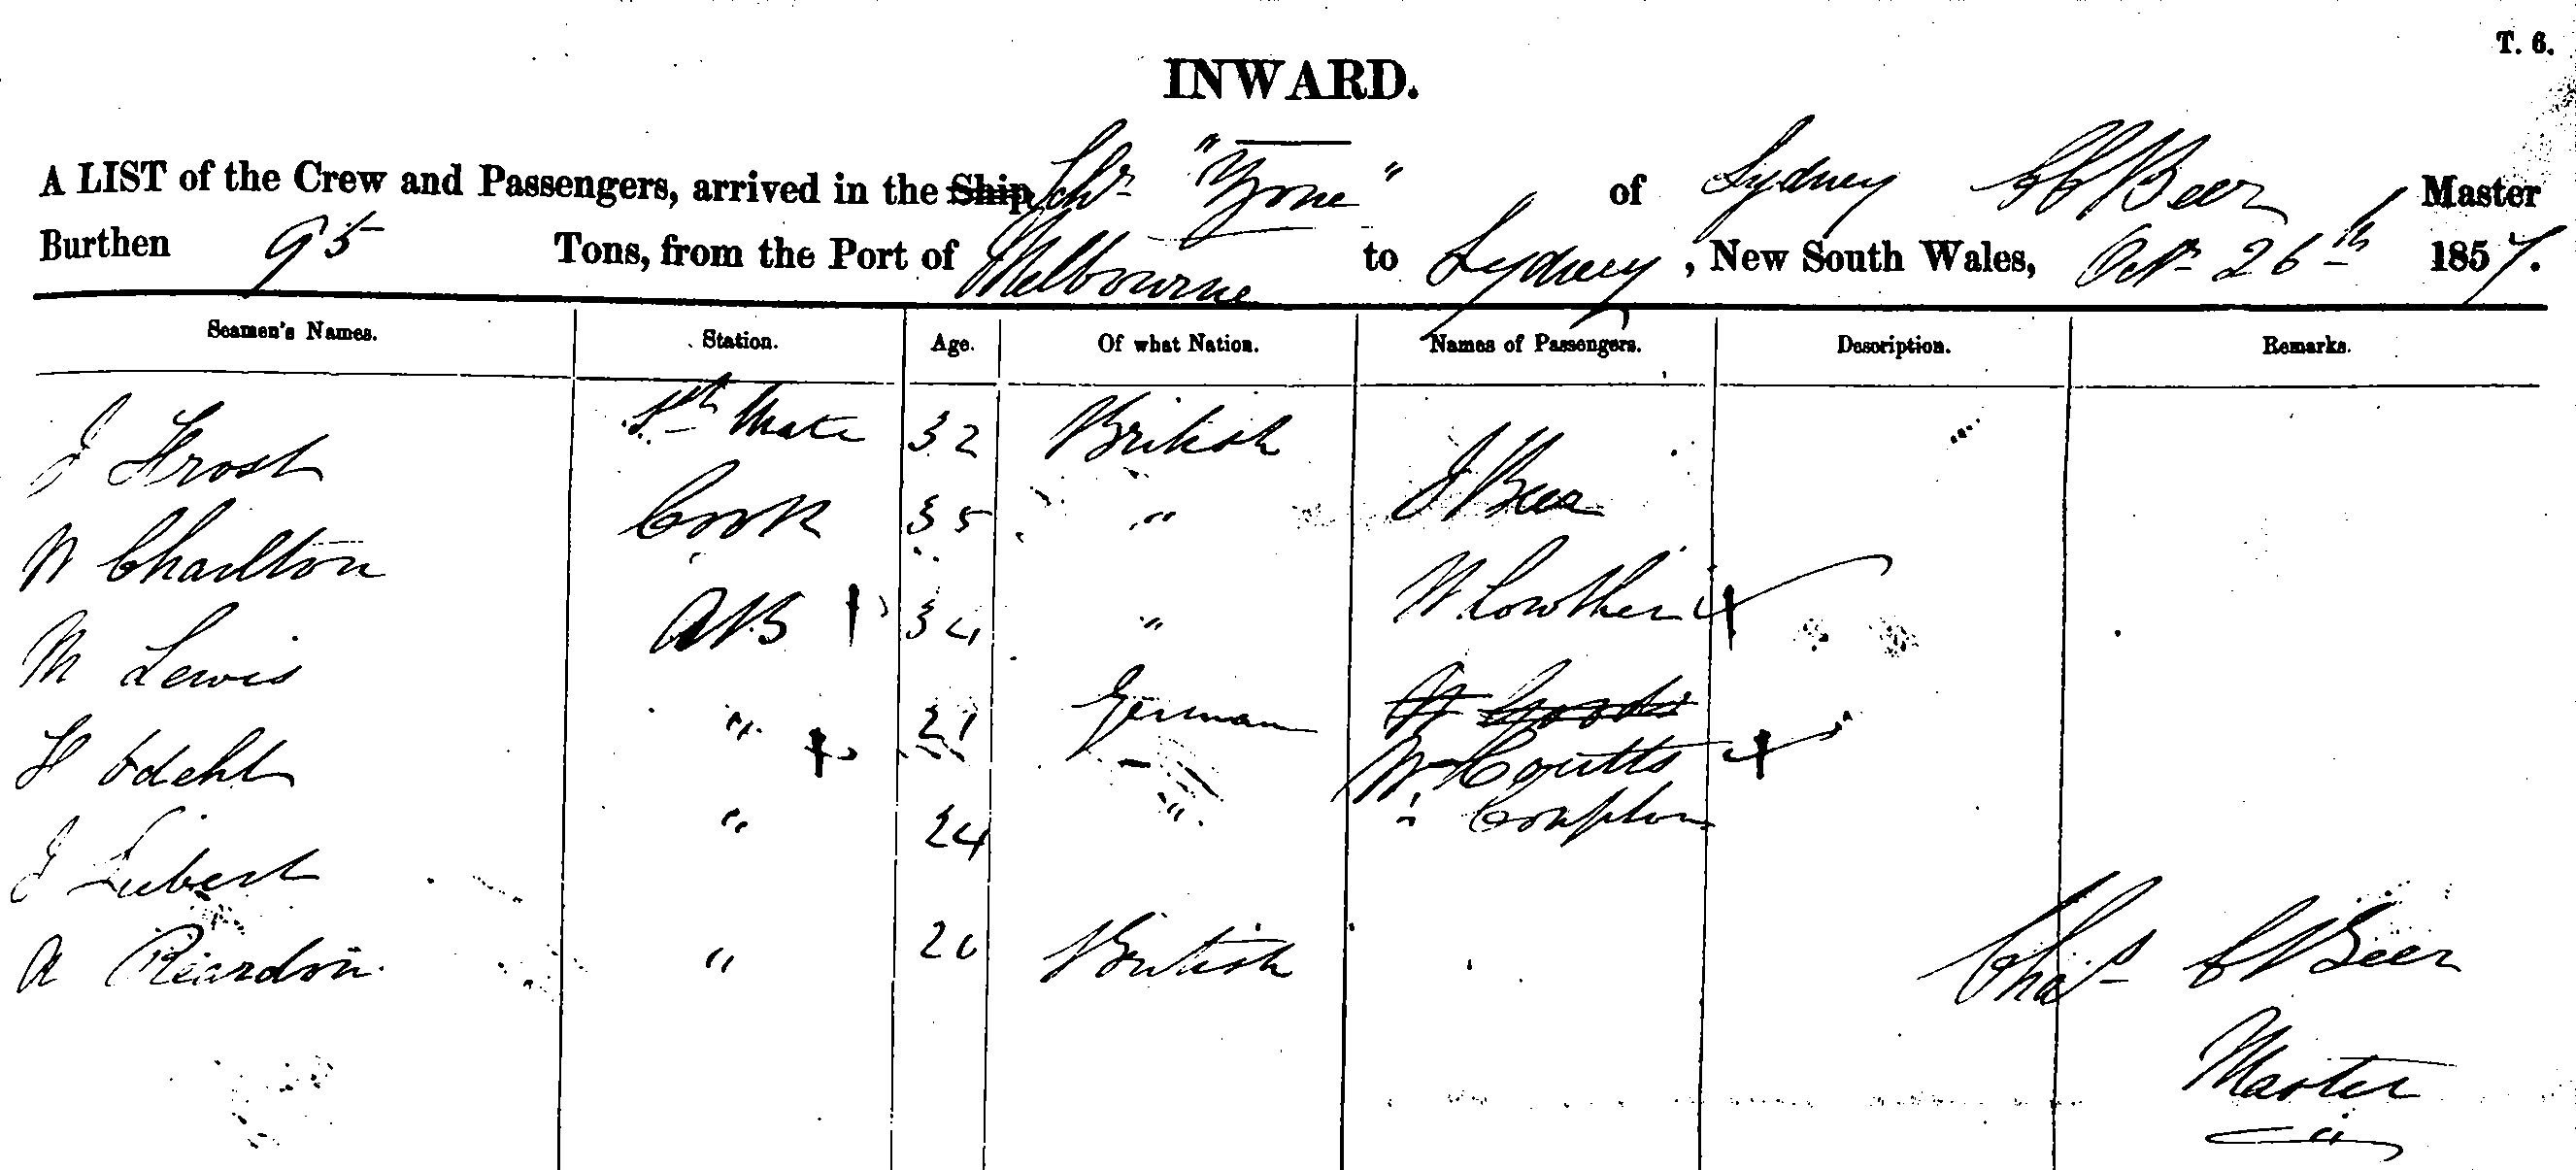 T. 6.
INWARD.
A LIST of the Crew and Passengers, arrived in the Ship Schr "Zone" of Sydney C C Beer Master
Burthen 95 Tons, from the Port of Melbourne to Sydney, New South Wales, Octr 26th 1857.
Seamen's Names. Station. Age. Of what Nation. Names of Passengers. Description. Remarks.
J Frost Mate 32 British
J Beer
W Charlton Cook 35 "
W Lowther
M Lewis AB 34 "
H " 21 German
W Coutts
J " 24 "
" Compton
A Reardon " 20 British
Chas C Beer
Master